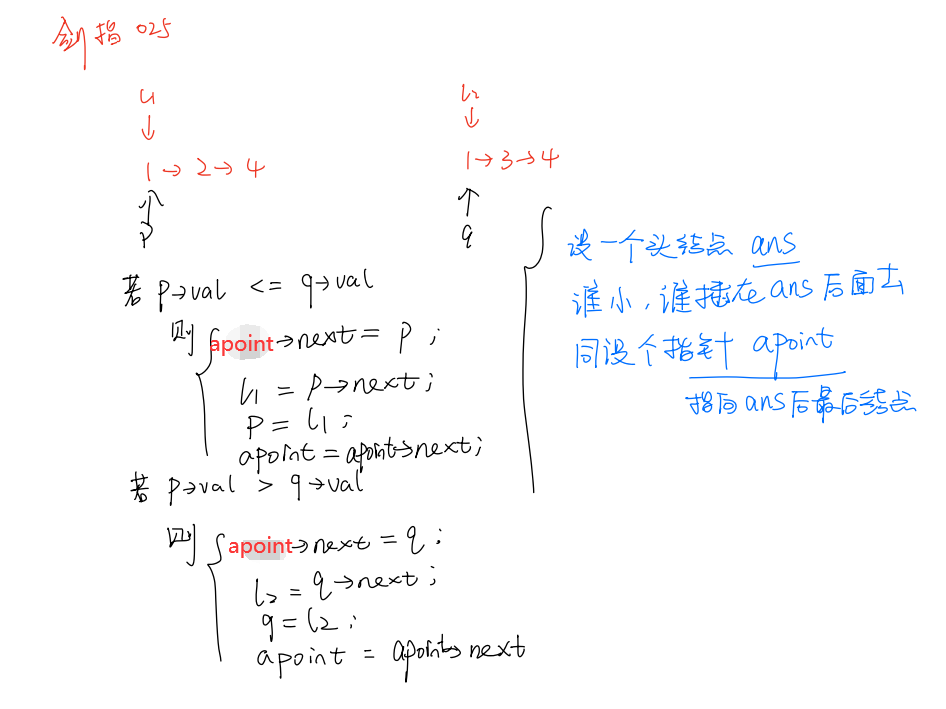 剑指 025
L1
L2
↓
↓
1→2→4
1→3→4
↑
↑
p
q
若 p→val <= q→val
则 apoint→next = p ;
l1 = p→next ;
p = l1 ;
apoint = apoint→next ;
若 p→val > q→val
则 apoint→next = q ;
l2 = q→next ;
q = l2 ;
apoint = apoint→next
设一个头结点 ans
谁小，谁插在 ans 后面去
同设个指针 apoint
指向 ans 后最后结点